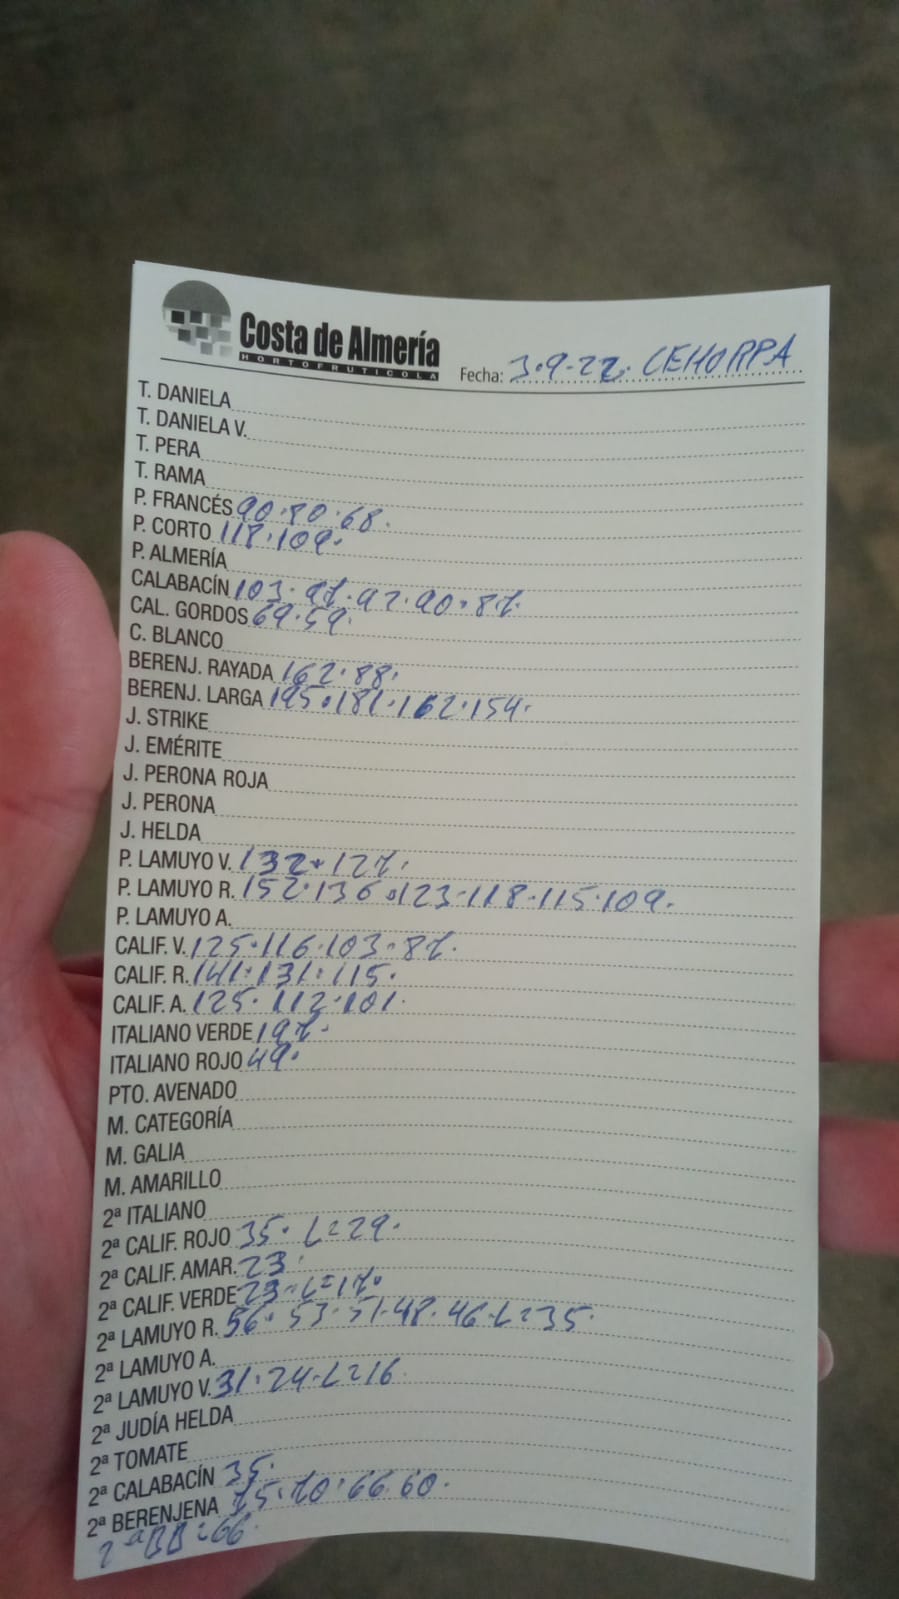 Costa de Almería
HORTOFRUTICOLA
Fecha: 3-9-22. CEHORPA
T. DANIELA
T. DANIELA V.
T. PERA
T. RAMA
P. FRANCÉS 90.80.68.
P. CORTO 118.109.
P. ALMERÍA
CALABACÍN 103.97.92.90.87.
CAL. GORDOS 69.59.
C. BLANCO
BERENJ. RAYADA 162.88.
BERENJ. LARGA 195.181.162.154.
J. STRIKE
J. EMÉRITE
J. PERONA ROJA
J. PERONA
J. HELDA
P. LAMUYO V. 132.127.
P. LAMUYO R. 152.136.123.118.115.109.
P. LAMUYO A.
CALIF. V. 125.116.103.87.
CALIF. R. 141.131.115.
CALIF. A. 125.112.101.
ITALIANO VERDE 197.
ITALIANO ROJO 49.
PTO. AVENADO
M. CATEGORÍA
M. GALIA
M. AMARILLO
2ª ITALIANO
2ª CALIF. ROJO 35. L=29.
2ª CALIF. AMAR. 23.
2ª CALIF. VERDE 23.L=17.
2ª LAMUYO R. 56.53.51.48.46.L=35.
2ª LAMUYO A.
2ª LAMUYO V. 31.24.L=16
2ª JUDÍA HELDA
2ª TOMATE
2ª CALABACÍN 35.
2ª BERENJENA 75.70.66.60.
2ª BB=66.